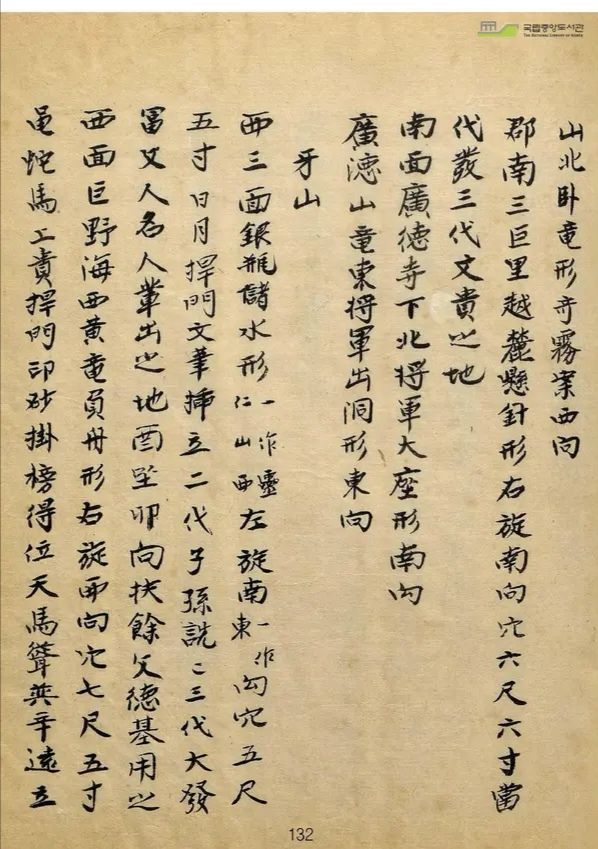 국립중앙도서관
THE NATIONAL LIBRARY OF KOREA
山北卧竜形奇霧案西向
郡南三巨里越麓懸針形右旋南向穴六尺六寸當
代發三代文貴之地
南面廣德寺下北将軍大座形南向
廣德山竜東将軍出洞形東向
牙山
西三面銀瓶儲水形一作靈仁山西左旋南一作東向穴五尺
五寸日月捍門文筆揷立二代子孫詵〻三代大發
冨文人名人輩出之地酉坐卯向扶餘 德基用之
西面巨野海西黄竜負舟形右旋西向穴七尺五寸
黾蛇馬上貴捍門印砂掛榜得位天馬聳 平遠立
132